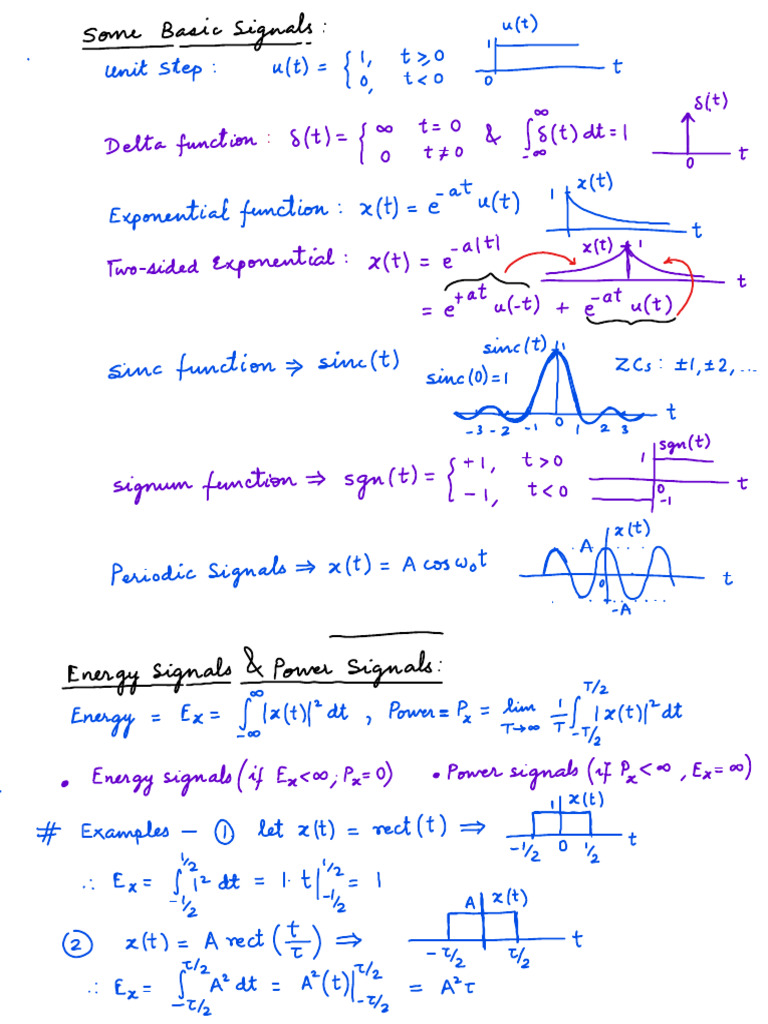 Some Basic Signals:
unit step: u(t) = { 1, t ≥ 0
0, t < 0
u(t) 1 0 t
Delta function: δ(t) = { ∞ t = 0
0 t ≠ 0 & ∫_{-∞}^{∞} δ(t) dt = 1
δ(t) 0 t
Exponential function: x(t) = e^{-at} u(t)
1 x(t) t
Two-sided Exponential: x(t) = e^{-a|t|}
x(t) 1 t
= e^{+at} u(-t) + e^{-at} u(t)
sinc function ⇒ sinc(t)
sinc(t) 1
sinc(0) = 1
ZCs: ±1, ±2, ...
-3 -2 -1 0 1 2 3 t
signum function ⇒ sgn(t) = { +1, t > 0
-1, t < 0
1 sgn(t) 0 -1 t
Periodic Signals ⇒ x(t) = A cos ω₀t
A x(t) 0 -A t
Energy Signals & Power Signals:
Energy = Eₓ = ∫_{-∞}^{∞} |x(t)|² dt , Power = Pₓ = lim_{T→∞} 1/T ∫_{-T/2}^{T/2} |x(t)|² dt
• Energy signals (if Eₓ < ∞; Pₓ = 0) • Power signals (if Pₓ < ∞, Eₓ = ∞)
# Examples - ① let x(t) = rect(t) ⇒
1 x(t) -1/2 0 1/2 t
∴ Eₓ = ∫_{-1/2}^{1/2} 1² dt = 1·t|_{-1/2}^{1/2} = 1
② x(t) = A rect(t/τ) ⇒
A x(t) -τ/2 τ/2 t
∴ Eₓ = ∫_{-τ/2}^{τ/2} A² dt = A²(t)|_{-τ/2}^{τ/2} = A²τ